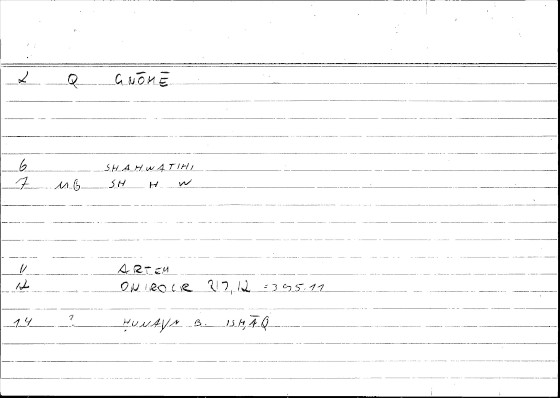 2 Q GNŌMĒ
6 SHAHWATIHI
7 MB SH H W
11 ARTEM
12 ONIROCR 217,12 = 395.11
14 ? ḤUNAYN B. ISḤĀQ